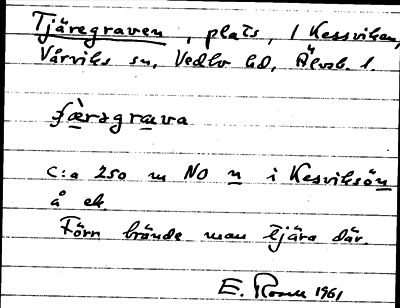 Tjäregraven, plats, i Kesviken,
Vårviks sn, Vedbo hd, Älvsb. l.
ʃæ̀rəgrava
C:a 250 m NO n i Kesviksön
å ek.
Förr brände man tjära där.
E. 1961